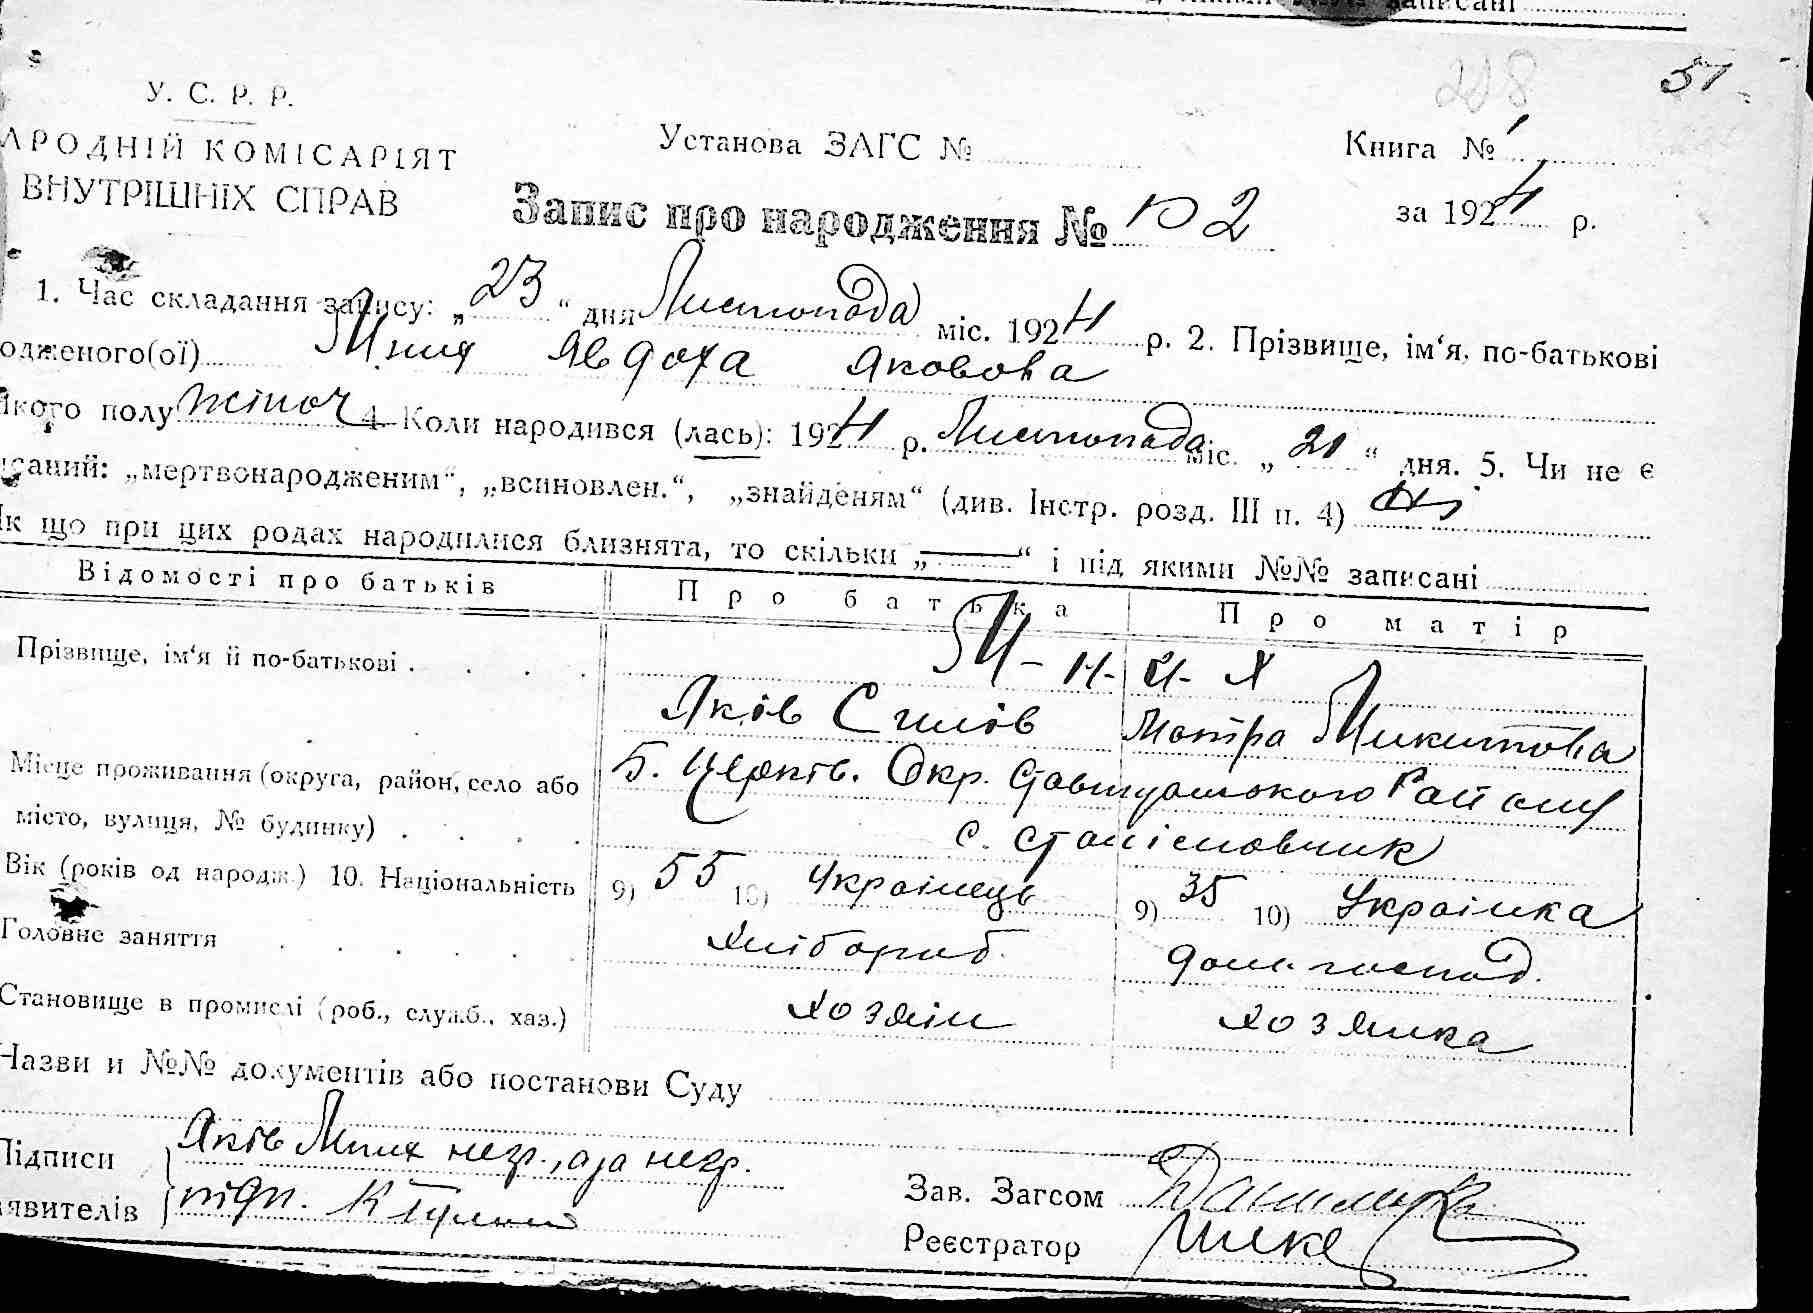 записані
228 51
У. С. Р. Р.
АРОДНІЙ КОМІСАРІЯТ
ВНУТРІШНІХ СПРАВ
Установа ЗАГС №
Книга № 1
Запис про народження № 102
за 1924 р.
1. Час складання запису: „23“ дня Листопада міс. 1924 р. 2. Прізвище, ім‘я, по-батькові
одженого(ої) Мних Явдоха Яковова
якого полу жіноч 4. Коли народився (лась): 1924 р. Листопада міс. „21“ дня. 5. Чи не є
исаний: „мертвонародженим“, „всиновлен.“, „знайденям“ (див. Інстр. розд. III п. 4) Ні
Як що при цих родах народилися близнята, то скільки „—“ і під якими №№ записані
Відомості про батьків Про батька Про матір
Прізвище, ім‘я й по-батькові . . . . М-н-и-х
Яків Силів Мотра Микитова
Місце проживання (округа, район, село або Б. Церків. Окр. Ставищанського Району
місто, вулиця, № будинку) . . . . с. Станіславчик
Вік (років од народж.) 10. Національність 9) 55 10) Українець 9) 35 10) Українка
Головне заняття . . . . Хлібороб. дом. господ.
Становище в промислі (роб., служб., хаз.) хозяїн хозяйка
Назви и №№ документів або постанови Суду
Підписи Яків Мних негр., а за негр.
аявителів підп.
Зав. Загсом
Реєстратор